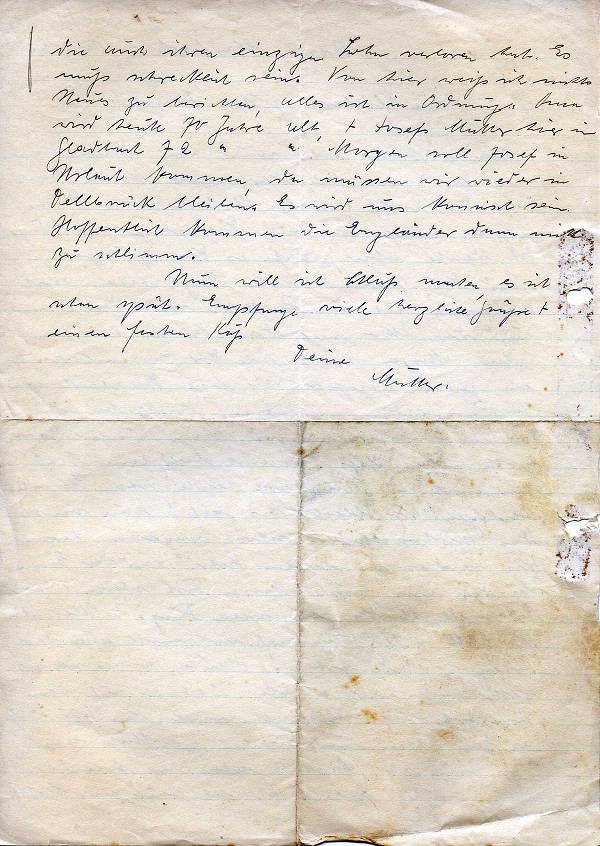 die auch ihren einzigen Sohn verloren hat. Es
muß schrecklich sein. Von hier weiß ich nichts
Neues zu berichten, alles ist in Ordnung.
wird heute 70 Jahre alt, + Josefs Mutter hier in
Gladbach 72 " " . Morgen soll Josef in
Urlaub kommen, da müssen wir wieder in
Dellbrück bleiben. Es wird uns komisch sein.
Hoffentlich kommen die Engländer dann nicht
zu schlimm.
Nun will ich Schluß machen, es ist
schon spät. Empfange viele herzliche Grüße +
einen festen Kuß
Deine
Mutter.